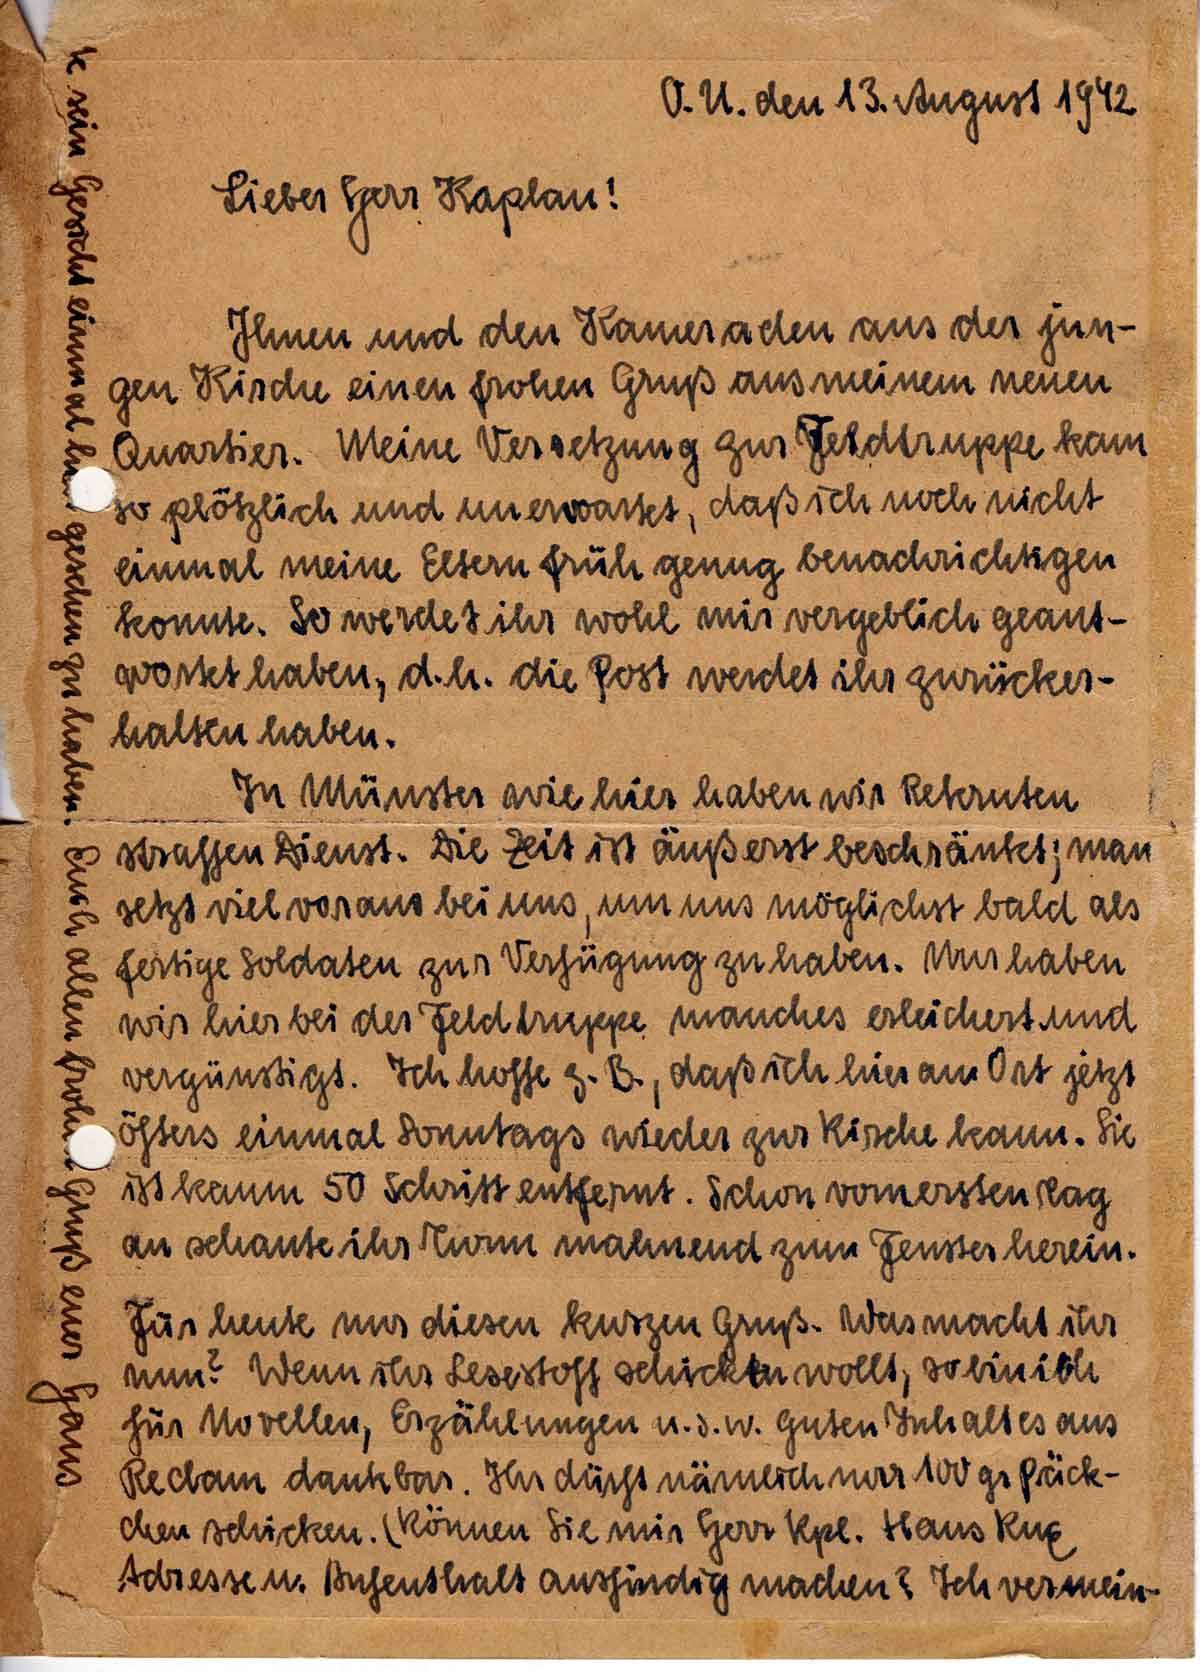 O.U. den 13. August 1942
Lieber Herr Kaplan!
Ihnen und den Kameraden aus der jun-
gen Kirche einen frohen Gruß aus meinem neuen
Quartier. Meine Versetzung zur Feldtruppe kam
so plötzlich und unerwartet, daß ich noch nicht
einmal meine Eltern früh genug benachrichtigen
konnte. So werdet ihr wohl mir vergeblich geant-
wortet haben, d.h. die Post werdet ihr zurücker-
halten haben.
In Münster wie hier haben wir Rekruten
straffen Dienst. Die Zeit ist äußerst beschränkt; man
setzt viel voraus bei uns, um uns möglichst bald als
fertige Soldaten zur Verfügung zu haben. Nur haben
wir hier bei der Feldtruppe manches erleichert und
vergünstigt. Ich hoffe z.B., daß ich hier am Ort jetzt
öfters einmal Sonntags wieder zur Kirche kann. Sie
ist kaum 50 Schritt entfernt. Schon vom ersten Tag
an schaute ihr Turm mahnend zum Fenster herein.
Für heute nur diesen kurzen Gruß. Was macht ihr
nun? Wenn ihr Lesestoff schicken wollt, so bin ich
für Novellen, Erzählungen u.s.w. guten Inhaltes aus
Reclam dankbar. Ihr dürft nämlich nur 100 gr Päck-
chen schicken. (Können Sie mir Herr Kpl. Hans
Adresse u. Aufenthalt ausfindig machen? Ich vermein-
te sein Gesicht einmal hier gesehen zu haben. Euch allen frohen Gruß euer Hans